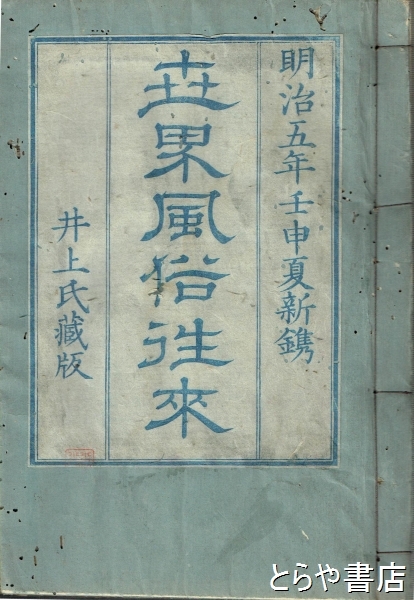 明治五年壬申夏新鐫
世界風俗往來
井上氏藏版
とらや書店